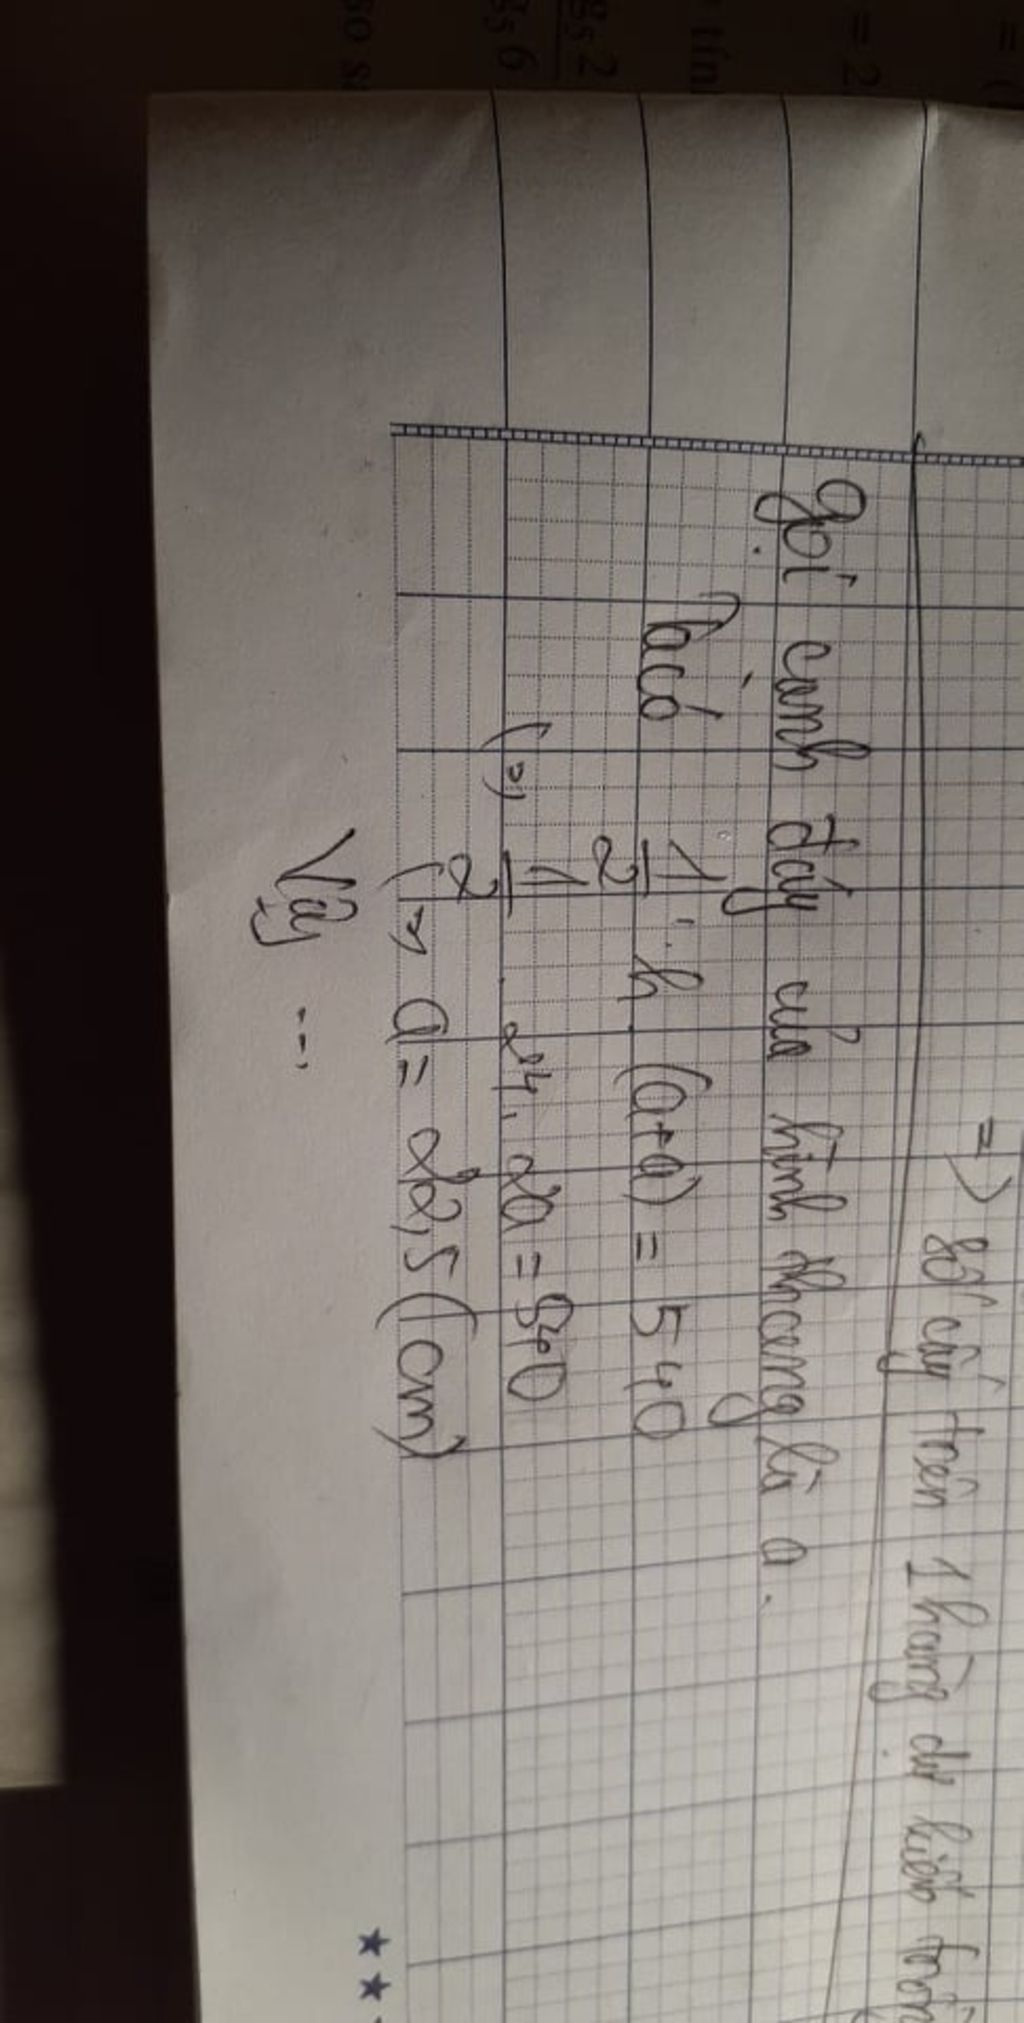 => số cây trên 1 hàng dự kiến trồn
gọi cạnh đáy của hình thang là a.
Ta có
1/2 . h (a+a) = 540
(=) 1/2 . 24. 2a = 540
(=) a = 22,5 (cm)
Vậy ...